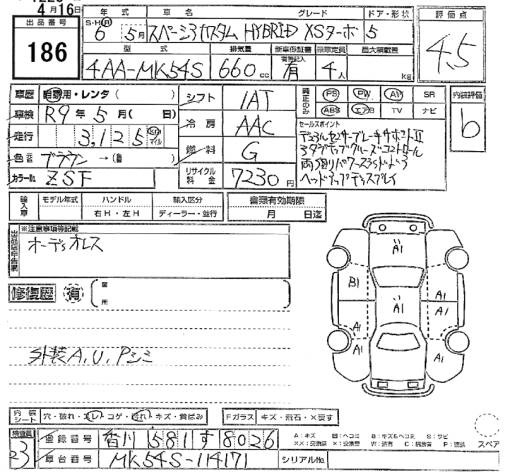 4月16日
出品番号 186
年式 車名 グレード ドア・形状 評価点
S・H・R 6年5月 スペーシアカスタム HYBRID XSターボ 5 4.5
型式 排気量 新車保証書 乗車定員 最大積載量
4AA-MK54S 660cc 有 4人 kg
車歴 自家用・レンタ シフト IAT
PS PW AW SR 内装評価
車検 R9年5月(日) 冷房 AAC ABS エアB TV ナビ b
走行 3,125 Km マイル セールスポイント
燃料 G デュアルセンサーブレーキサポートII
色 ブラウン→(色) アダプティブクルーズコントロール
カラーNo. ZSF リサイクル料金 7230円 両側パワースライドドア
ヘッドアップディスプレイ
輸入車 モデル年式 ハンドル 右H・左H 輸入区分 ディーラー・並行 書類有効期限 月 日迄
※注意事項等記載
オーディオレス
A1
修復歴 有
B1 A1 A1
A1 A1
A1 A1
外装A.U.Pシミ
A1
内装シート 穴・破れ・スレ・コゲ・汚れ・キズ・黄ばみ Fガラス キズ・飛石・X要す
登録番号 香川 581す8026
A:キズ
スペア
23 車台番号 MK54S-114171 シリアルNo.